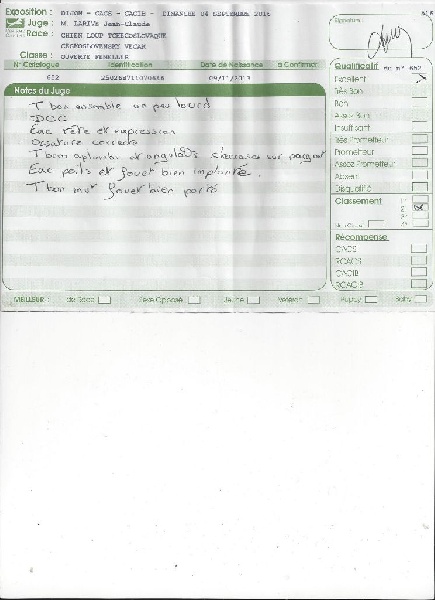 Exposition : DIJON - CACS - CACIB - DIMANCHE 04 SEPTEMBRE 2016
Juge : M. LARIVE Jean-Claude
Race : CHIEN LOUP TCHECOSLOVAQUE
CESKOSLOVENSKY VLCAK
Classe : OUVERTE FEMELLE
Signature :
N° Catalogue Identification Date de Naissance à Confirmer
652 09/11/2013
Notes du Juge
T bon ensemble un peu lourd
Exc tête et expression
Ossature correcte
T bon aplombs et angulés
Exc poils et fouet bien implanté.
T bon mvt fouet bien porté
Qualificatif 652
Excellent
Très Bon
Bon
Assez Bon
Insuffisant
Très Prometteur
Prometteur
Assez Prometteur
Absent
Disqualifié
Classement
Récompense
CACS
RCACS
CACIB
RCACIB
MEILLEUR : de Race Sexe Opposé Jeune Vétéran Puppy Baby